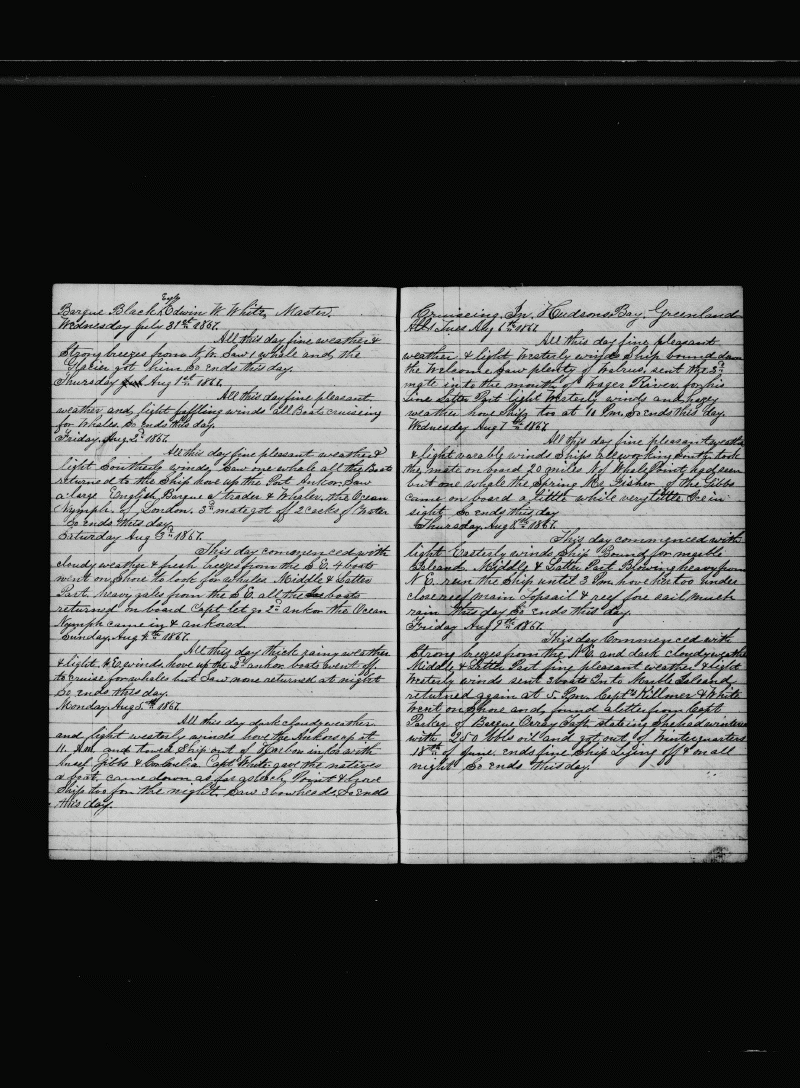 Barque Black Eagle Edwin W. White, Master.
Wednesday July 31st 1867.
All this day fine weather &
Strong breezes from N.W. Saw 1 whale and the
Glacier got him So ends this day.
Thursday Aug 1st 1867.
All this day fine pleasant
weather and light baffling winds all Boats cruiseing
for Whales. So ends this day.
Friday, Aug 2d 1867.
All this day fine pleasant weather &
light Southerly winds, Saw one whale all the Boats
returned to the Ship hove up the Port Ankor. Saw
a large English Barque a trader & Whaler, the Ocean
Nymph of London. 3d mate got off 2 casks of Water
So ends this day.
Saturday Aug 3d 1867.
This day commenced with
cloudy weather & fresh breezes from the S.E. 4 boats
went on Shore to look for whales Middle & Latter
Part heavy gales from the S.E. all the boats
returned on board Capt let go 2d ankor the Ocean
Nymph came in & ankored.
Sunday, Aug 4th 1867.
All this day thick rainy weather
& light winds, hove up the 2d ankor boats went off
to cruise for whales but Saw none returned at night
So ends this day.
Monday Aug 5th 1867
All this day dark cloudy weather
and light westerly winds hove the Ankors up at
11. Am and towed Ship out of Harbor in Co with
Ansel Gibbs & Cornelia Capt White gave the natives
a boat. came down as far as Point & hove
Ship too for the night. Saw 3 bowheads. So ends
this day.
Cruiseing In Hudsons Bay, Greenland
Tues Aug 6th 1867
All this day fine pleasant
weather & light Westerly winds Ship bound down
the Welcome Saw plenty of Walrus, sent the 3d
mate in to the mouth of Wager River for his
line Latter Part light Westerly winds and
weather hove Ship too at 10 Pm. So ends this day.
Wednesday Aug 7th 1867
All this day fine pleasant weather
& light varably winds Ships all working South, took
the mate on board 20 miles N of Whale Point, had seen
but one whale the Spring Mr Fisher of the Gibbs
came on board a little while very little Ice in
sight So ends this day
Thursday Aug 8th 1867.
This day commenced with
light Easterly winds Ship Bound for marble
Island. Middle & Latter Part Blowing heavy from
N.E. run the Ship until 3 Pm hove her too under
close reef main Topsail & reef fore sail much
rain this day So ends this day.
Friday Aug 9th 1867.
This day Commenced with
Strong breezes from the N.E and dark cloudy weather
Middle & Latter Part fine pleasant weather & light
Westerly winds sent 3 boats In to Marble Island
returned again at 5. Pm. Capts & White
went on Shore and found a letter from Capt
Parker of Barque stating She had wintered
with 250 bbls oil and got out of Winterquarters
18th of June. ends fine Ship Lying off & on all
night So ends this day.